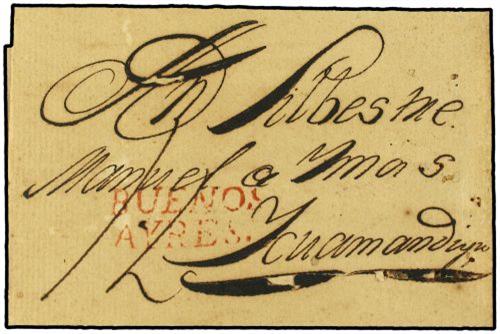 Dn Silbestre
Manuel a Ymas
BUENOS
AYRES.
Ycuamandiyu